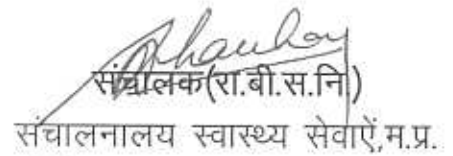 संचालक(रा.बी.स.नि)
संचालनालय स्वास्थ्य सेवाऐं,म.प्र.